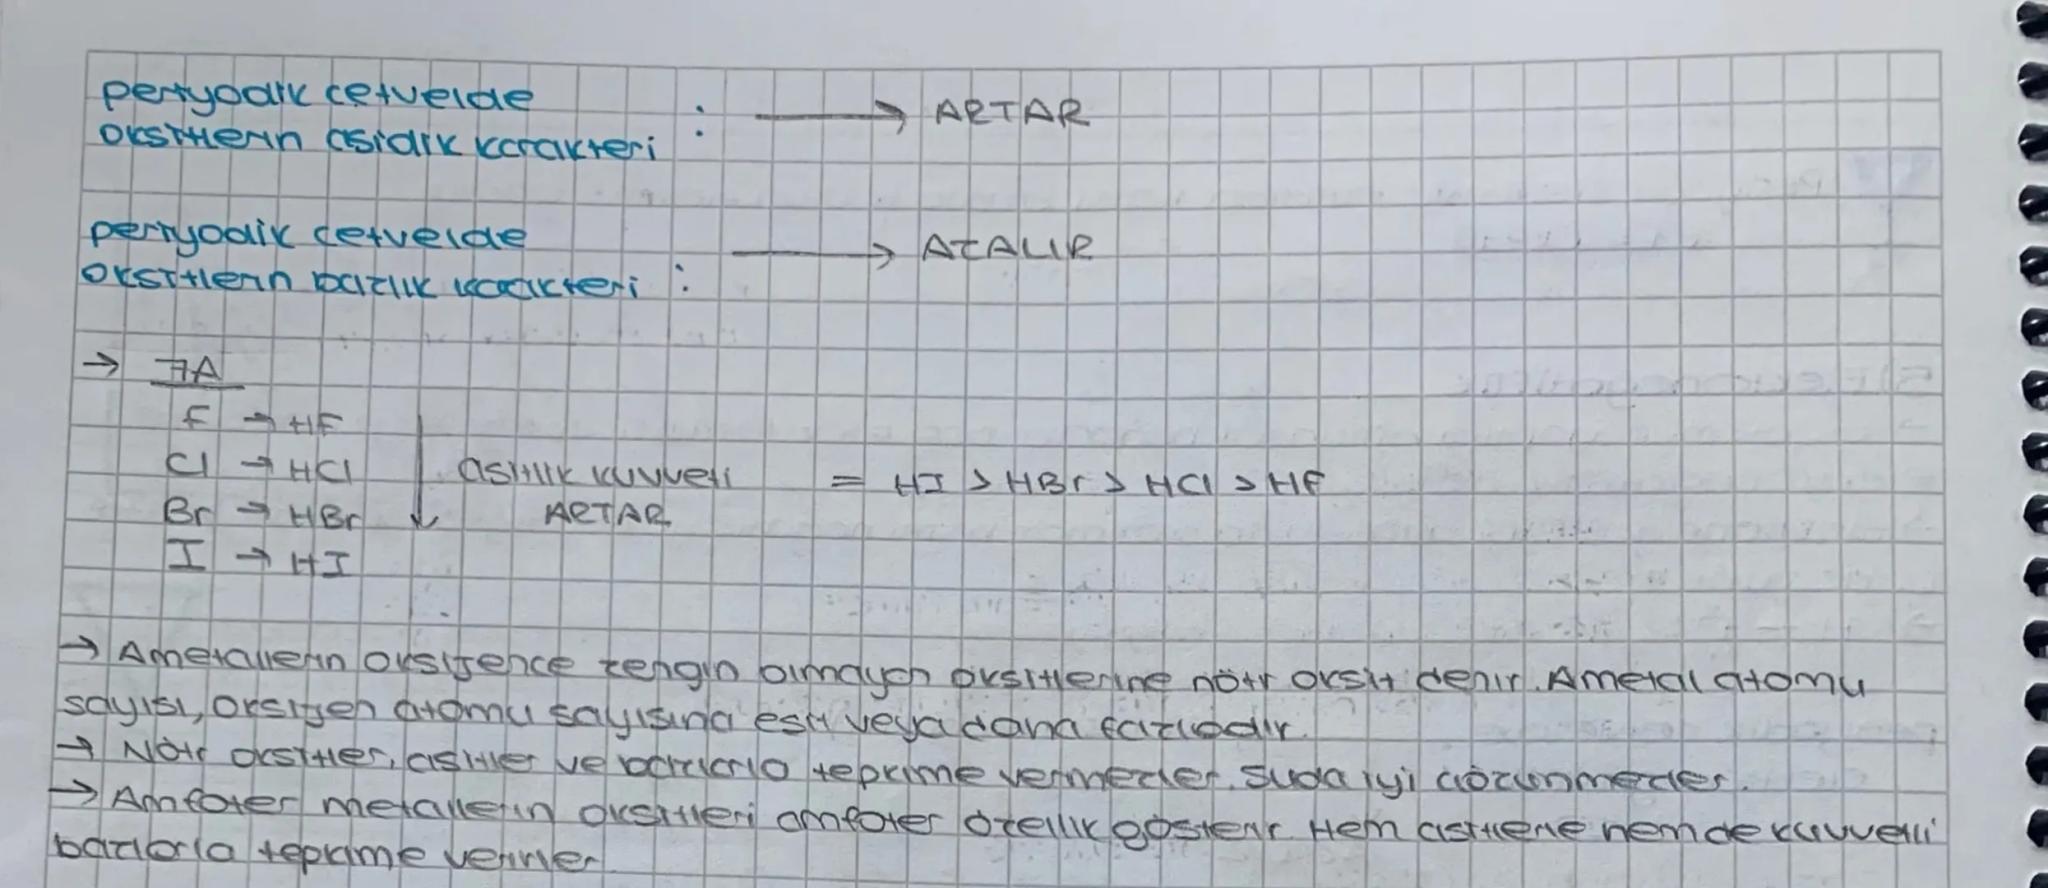 periyodik cetvelde
oksitlerin asidik karakteri : → ARTAR
periyodik cetvelde
oksitlerin bazik karakteri : → AZALIR
→ 7A
F → HF
Cl → HCl
Br → HBr
I → HI
↓ asitlik kuvveti
ARTAR
= HI > HBr > HCl > HF
→ Ametallerin oksijence zengin olmayan oksitlerine nötr oksit denir. Ametal atomu
sayısı, oksijen atomu sayısına eşit veya daha fazladır.
→ Nötr oksitler, asitler ve bazlarla tepkime vermezler. Suda iyi çözünmezler.
→ Amfoter metallerin oksitleri amfoter özellik gösterir. Hem asitlerle hemde kuvvetli
bazlarla tepkime verirler